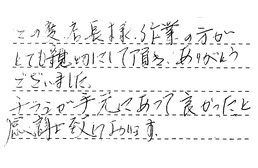 この度店長様、作業の方が
とても親切にして頂き、ありがとう
ございました。
チラシが手元にあって良かったと
感謝致しております。